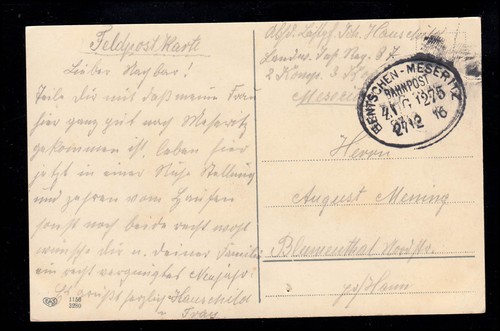 Feldpost Karte
Lieber Nagbar!
Teile dir mit daß meine Frau
hier ganz gut nach Meseritz
gekommen ist. leben hier
jetzt in einer Stellung
und zehren vom Haufen
sonst noch beide recht wohl
wünsche dir u. deiner Familie
ein recht vergnügtes Neujahr
Es grüßt herzlich Hauschild
u Frau
1156
3280
Abs. Hauschild
Landw. Inf. Reg. 87
2 Komp.
Meseritz
BENTSCHEN-MESERITZ
BAHNPOST
ZUG 1275
2712 16
Herrn
August Mening
Blumenthal Nordstr.